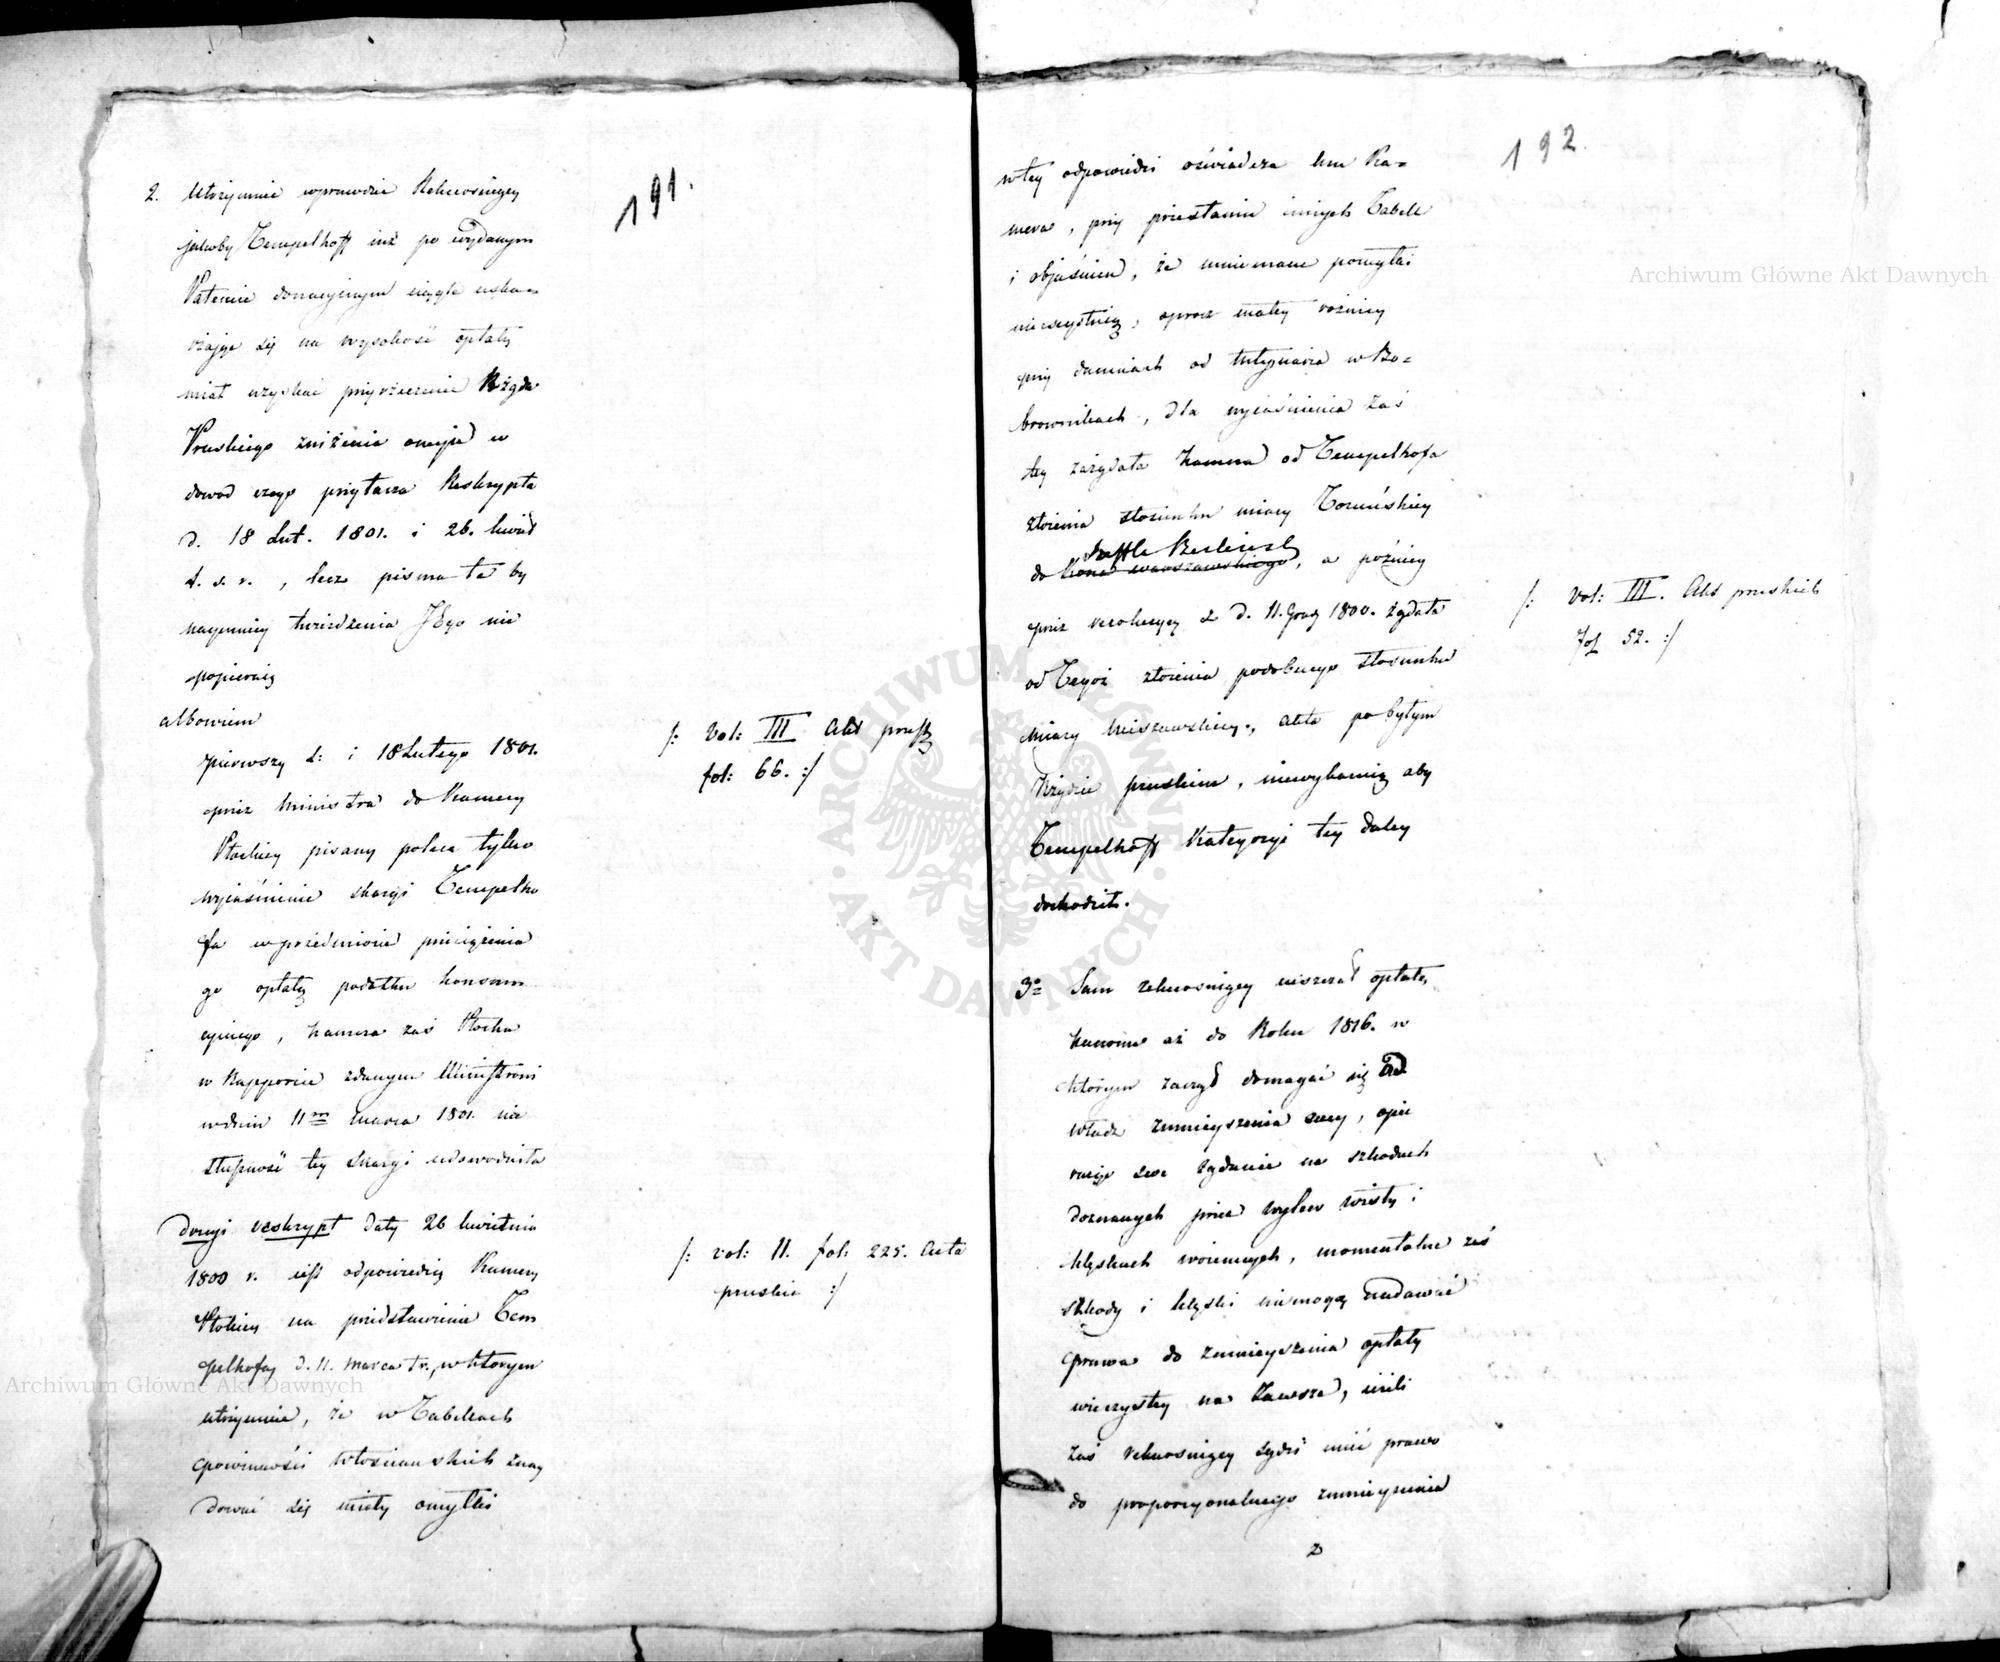 191.
2. Utrzymuie wprawdzie Rekurosiący
jakoby Tempelhoff iuż po wydanym
Patencie donacyinym ciągle uska=
rżaiąc się na wysokość opłaty
miał uzyskać przyrzeczenie Rządu
Pruskiego zniżenia oneyże w
dowod czego przytacza Reskrypta
d. 18 Lut. 1801. i 26. kwiet
t. s. r., lecz pisma te by
naymniey twierdzenia JEgo nie
popieraią
albowiem
pierwszy d: i 18 Lutego 1801.
przez Ministra do Kamery
Płockiey pisany poleca tylko
wyiaśnienie skargi Tempelho
fa w przedmiocie przeciążenia
go opłatą podatku konsum
cyinego, kamera zaś Płocka
w Rapporcie zdanym Ministrowi
w dniu 11m marca 1801. nie
słuszność tey skargi udowodniła
/: Vol: III Akt prusk
fol: 66. :/
drugi reskrypt daty 26 kwietnia
1800 r. iest odpowiedzią Kamery
Płockiey na przedstawienie Tem
pelhofa d. 11. marca t.r., w ktorym
utrzymuie, że w Tabelkach
powinności włościańskich znay
dować się miały omyłki
/: vol: II. fol: 225. Acta
pruskie :/
192.
w tey odpowiedzi oświadcza mu Ka=
mera, przy przesłaniu innych Tabell
i obiaśnień, że mniemane pomyłki
nieexystuią, oprocz małey rożnicy
przy daninach od młynarza w Bo=
brownikach, dla wyiaśnienia zaś
tey zażądała Kamera od Tempelhofa
złożenia stosunku miary Toruńskiey
Szeffla Berlińsk
do Korca warszawskiego, a poźniey
przez rezolucyą z d. 11. Grud 1800. żądała
od Tegoż złożenia podobnego stosunku
miary Nieszawskiey, akta po byłym
Rządzie pruskim, niewykazuią aby
Tempelhoff Kategoryi tey daley
dochodził.
/: Vol: III. Akt pruskich
Fol 52. :/
3o Sam rekurosiący uiszczał opłatę
kanonu aż do Roku 1816. w
ktorym zaczął domagać się od
władz zmnieyszenia oney, opie
raiąc swe żądanie na szkodach
doznanych przez wylew wisły i
klęskach woiennych, momentalne zaś
szkody i klęski niemogą nadawać
prawa do zmnieyszenia opłaty
wieczystey na zawsze, ieżeli
zaś rekurosiący sądzi mieć prawo
do proporcyonalnego zmnieyszenia
z
Archiwum Główne Akt Dawnych
Archiwum Główne Akt Dawnych
ARCHIWUM GŁÓWNE · AKT DAWNYCH ·